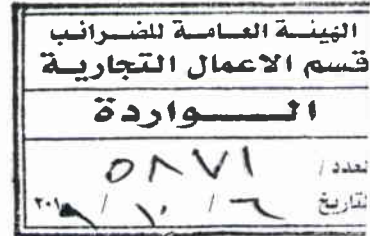 الهيئة العامة للضرائب
قسم الاعمال التجارية
الواردة
العدد / ٥٨٧١
التاريخ ٦ / ١٠ / ٢٠١٩